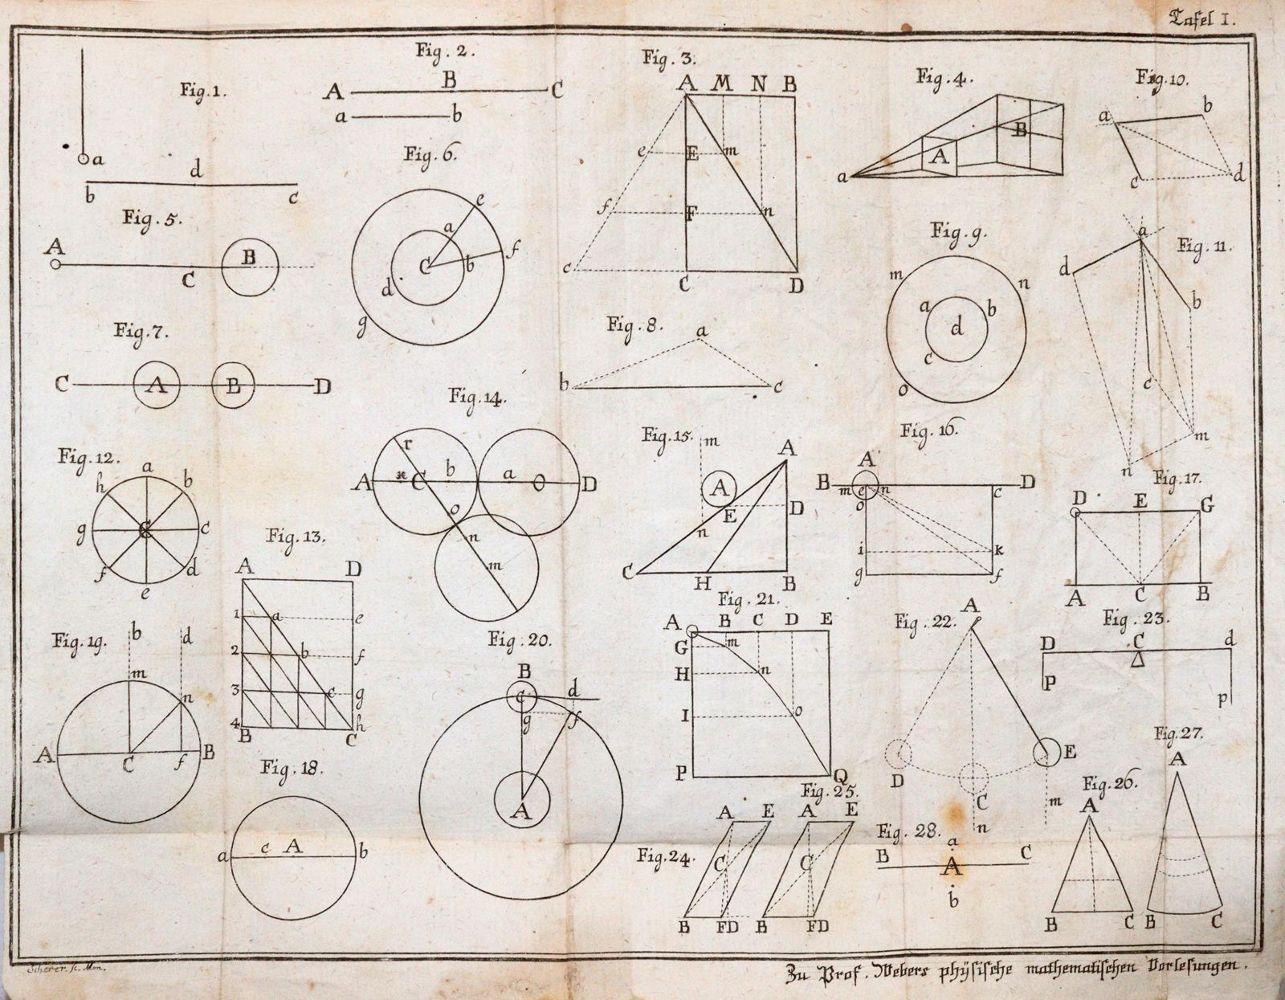 Tafel I.
Fig. 1.
a
b d c
Fig. 2.
A B C
a b
Fig. 3.
A M N B
e E m
f F n
c C D
Fig. 4.
a A B
Fig. 10.
a b
c d
Fig. 5.
A C B
Fig. 6.
e
a f
C b
d
g
Fig. 9.
m n
a b
d
c
o
Fig. 11.
a
d b
c
m
n
Fig. 7.
C A B D
Fig. 8.
a
b c
Fig. 12.
a
h b
g C c
f d
e
Fig. 13.
A D
1 a e
2 b f
3 c g
4 h
B C
Fig. 14.
r
A x C b a O D
o
n
m
Fig. 15.
m A
A
E D
n
C H B
Fig. 16.
A
B m e n D
o c
i k
g f
Fig. 17.
D E G
A C B
Fig. 19.
b d
m
n
A C f B
Fig. 18.
a c A b
Fig. 20.
B
C d
g f
A
Fig. 21.
A B C D E
G m
H n
I o
P Q
Fig. 22.
A
D E
C m
n
Fig. 23.
D C d
P p
Fig. 24.
A E
C
B F D
Fig. 25.
A E
C
B F D
Fig. 28.
a
B A C
b
Fig. 26.
A
B C
Fig. 27.
A
B C
Scherer. sc. Mon.
Zu Prof. Webers phÿsische mathematischen Vorlesungen.